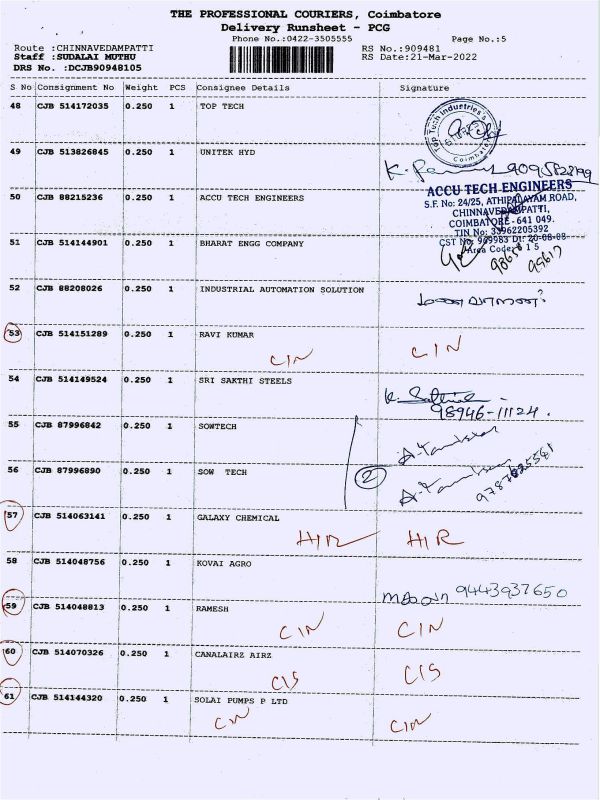 THE PROFESSIONAL COURIERS, Coimbatore
Delivery Runsheet - PCG
Phone No.:0422-3505555 Page No.:5
Route :CHINNAVEDAMPATTI RS No.:909481
Staff :SUDALAI MUTHU RS Date:21-Mar-2022
DRS No. :DCJB90948105
S No Consignment No Weight PCS Consignee Details Signature
48 CJB 514172035 0.250 1 TOP TECH
Top Tech Industries Coimbatore
49 CJB 513826845 0.250 1 UNITEK HYD
K.
50 CJB 88215236 0.250 1 ACCU TECH ENGINEERS
ACCU TECH ENGINEERS
S.F. No: 24/25, ATHIPALAYAM ROAD,
CHINNAVEDAMPATTI,
COIMBATORE - 641 049.
TIN No: 33962205392
CST No: 969983 Dt: 20-08-08
Area Code: 1 5
51 CJB 514144901 0.250 1 BHARAT ENGG COMPANY
52 CJB 88208026 0.250 1 INDUSTRIAL AUTOMATION SOLUTION
53 CJB 514151289 0.250 1 RAVI KUMAR
CIN CIN
54 CJB 514149524 0.250 1 SRI SAKTHI STEELS
98946-11124.
55 CJB 87996842 0.250 1 SOWTECH
56 CJB 87996890 0.250 1 SOW TECH
2
57 CJB 514063141 0.250 1 GALAXY CHEMICAL
HIR HIR
58 CJB 514048756 0.250 1 KOVAI AGRO
9443937650
59 CJB 514048813 0.250 1 RAMESH
CIN CIN
60 CJB 514070326 0.250 1 CANALAIRZ AIRZ
CIS CIS
61 CJB 514144320 0.250 1 SOLAI PUMPS P LTD
CIN CIN